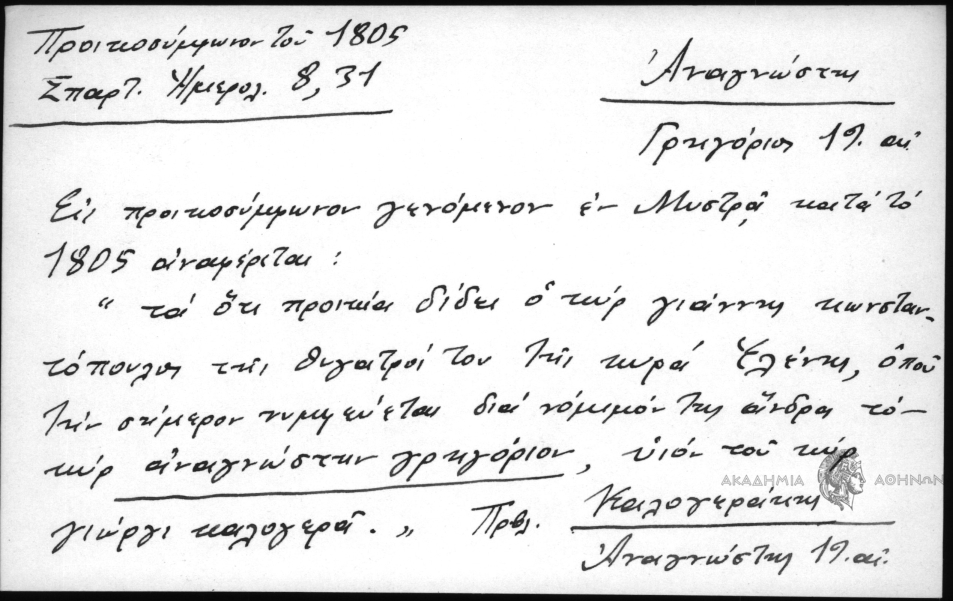 Προικοσύμφωνον τοῦ 1805
Σπαρτ. Ἡμερολ. 8, 31
Ἀναγνώστης
Γρηγόριος 19. αἰ.
Εἰς προικοσύμφωνον γενόμενον ἐν Μυστρᾷ κατά τό
1805 ἀναφέρεται :
“ τά ὅτι προικιά δίδει ὁ κύρ γιάννης κωνσταν-
τόπουλος τῆς θυγατρός του τῆς κυρά Ἑλένης, ὁποῦ
τήν σήμερον νυμφεύεται διά νόμιμόν της ἄνδρα τό-
κύρ ἀναγνώστην γρηγόριον, υἱόν τοῦ κύρ
γιώργι καλογερᾶ. „ Πρβλ. Καλογεράκης
Ἀναγνώστης 19. αἰ.
ΑΚΑΔΗΜΙΑ ΑΘΗΝΩΝ